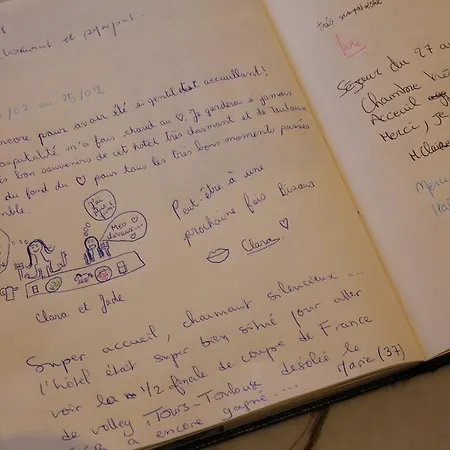 charmant et sympat.
/02 au 25/02
encore pour avoir été si gentil et accueillant!
hospitalité m'a fait chaud au ♡. Je garderai à jamais
très bon souvenirs de cet hotel très charmant et de Toulouse
du fond du ♡ pour tous les très bons moments passés
Mes ♡
devoirs...
Clara et Jade
Peut-être à une
prochaine fois Bisous
Clara ♡
Super accueil, charmant silencieux ...
l'hôtel était super bien situé pour aller
voir la 1/2 finale de coupe de France
de volley : Tours-Toulouse désolée le
a encore gagné....
Marie (37)
très
Séjour du 27 a
Chambre
Accueil
Merci, je
Merci